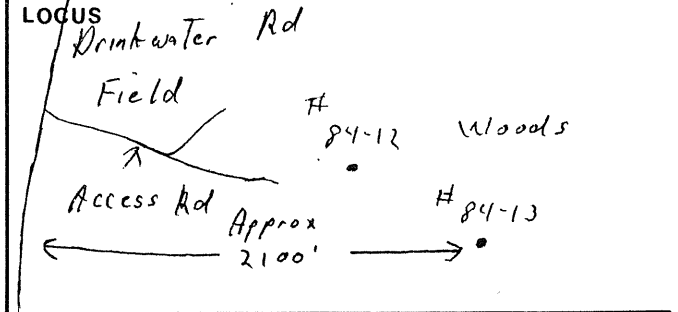 LOCUS
Drinkwater Rd
Field
# 84-12
Woods
Access Rd
# 84-13
Approx
2100'